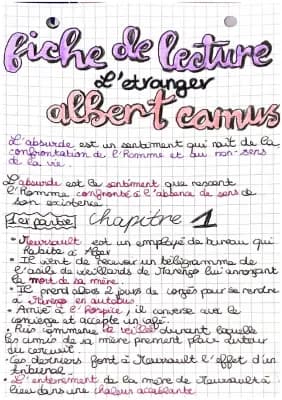 fiche de lecture
L'etranger
albert camus
L'absurde est un sentiment qui naît de la
confrontation de l'Homme et au non-sens
de la vie.
L'absurde est le sentiment que ressent
l'Homme confronté à l'absence de sens de
son existence
1ère partie Chapitre 1
• Meursault est un employé de bureau qui
habite à Alger
• Il vient de recevoir un télégramme de
l'asile de vieillards de Marengo lui annonçant
la mort de sa mère.
• Il prend alors 2 jours de congés pour se rendre
à Marengo en autobus
• Arrivé à l'hospice, il converse avec le
concierge et accepte un café.
• Puis commence la veillée durant laquelle
les amis de sa mère prennent place autour
du cercueil.
• Ces derniers font à Meursault l'effet d'un
tribunal.
• L'enterrement de la mère de Meursault a
lieu dans une chaleur accablante